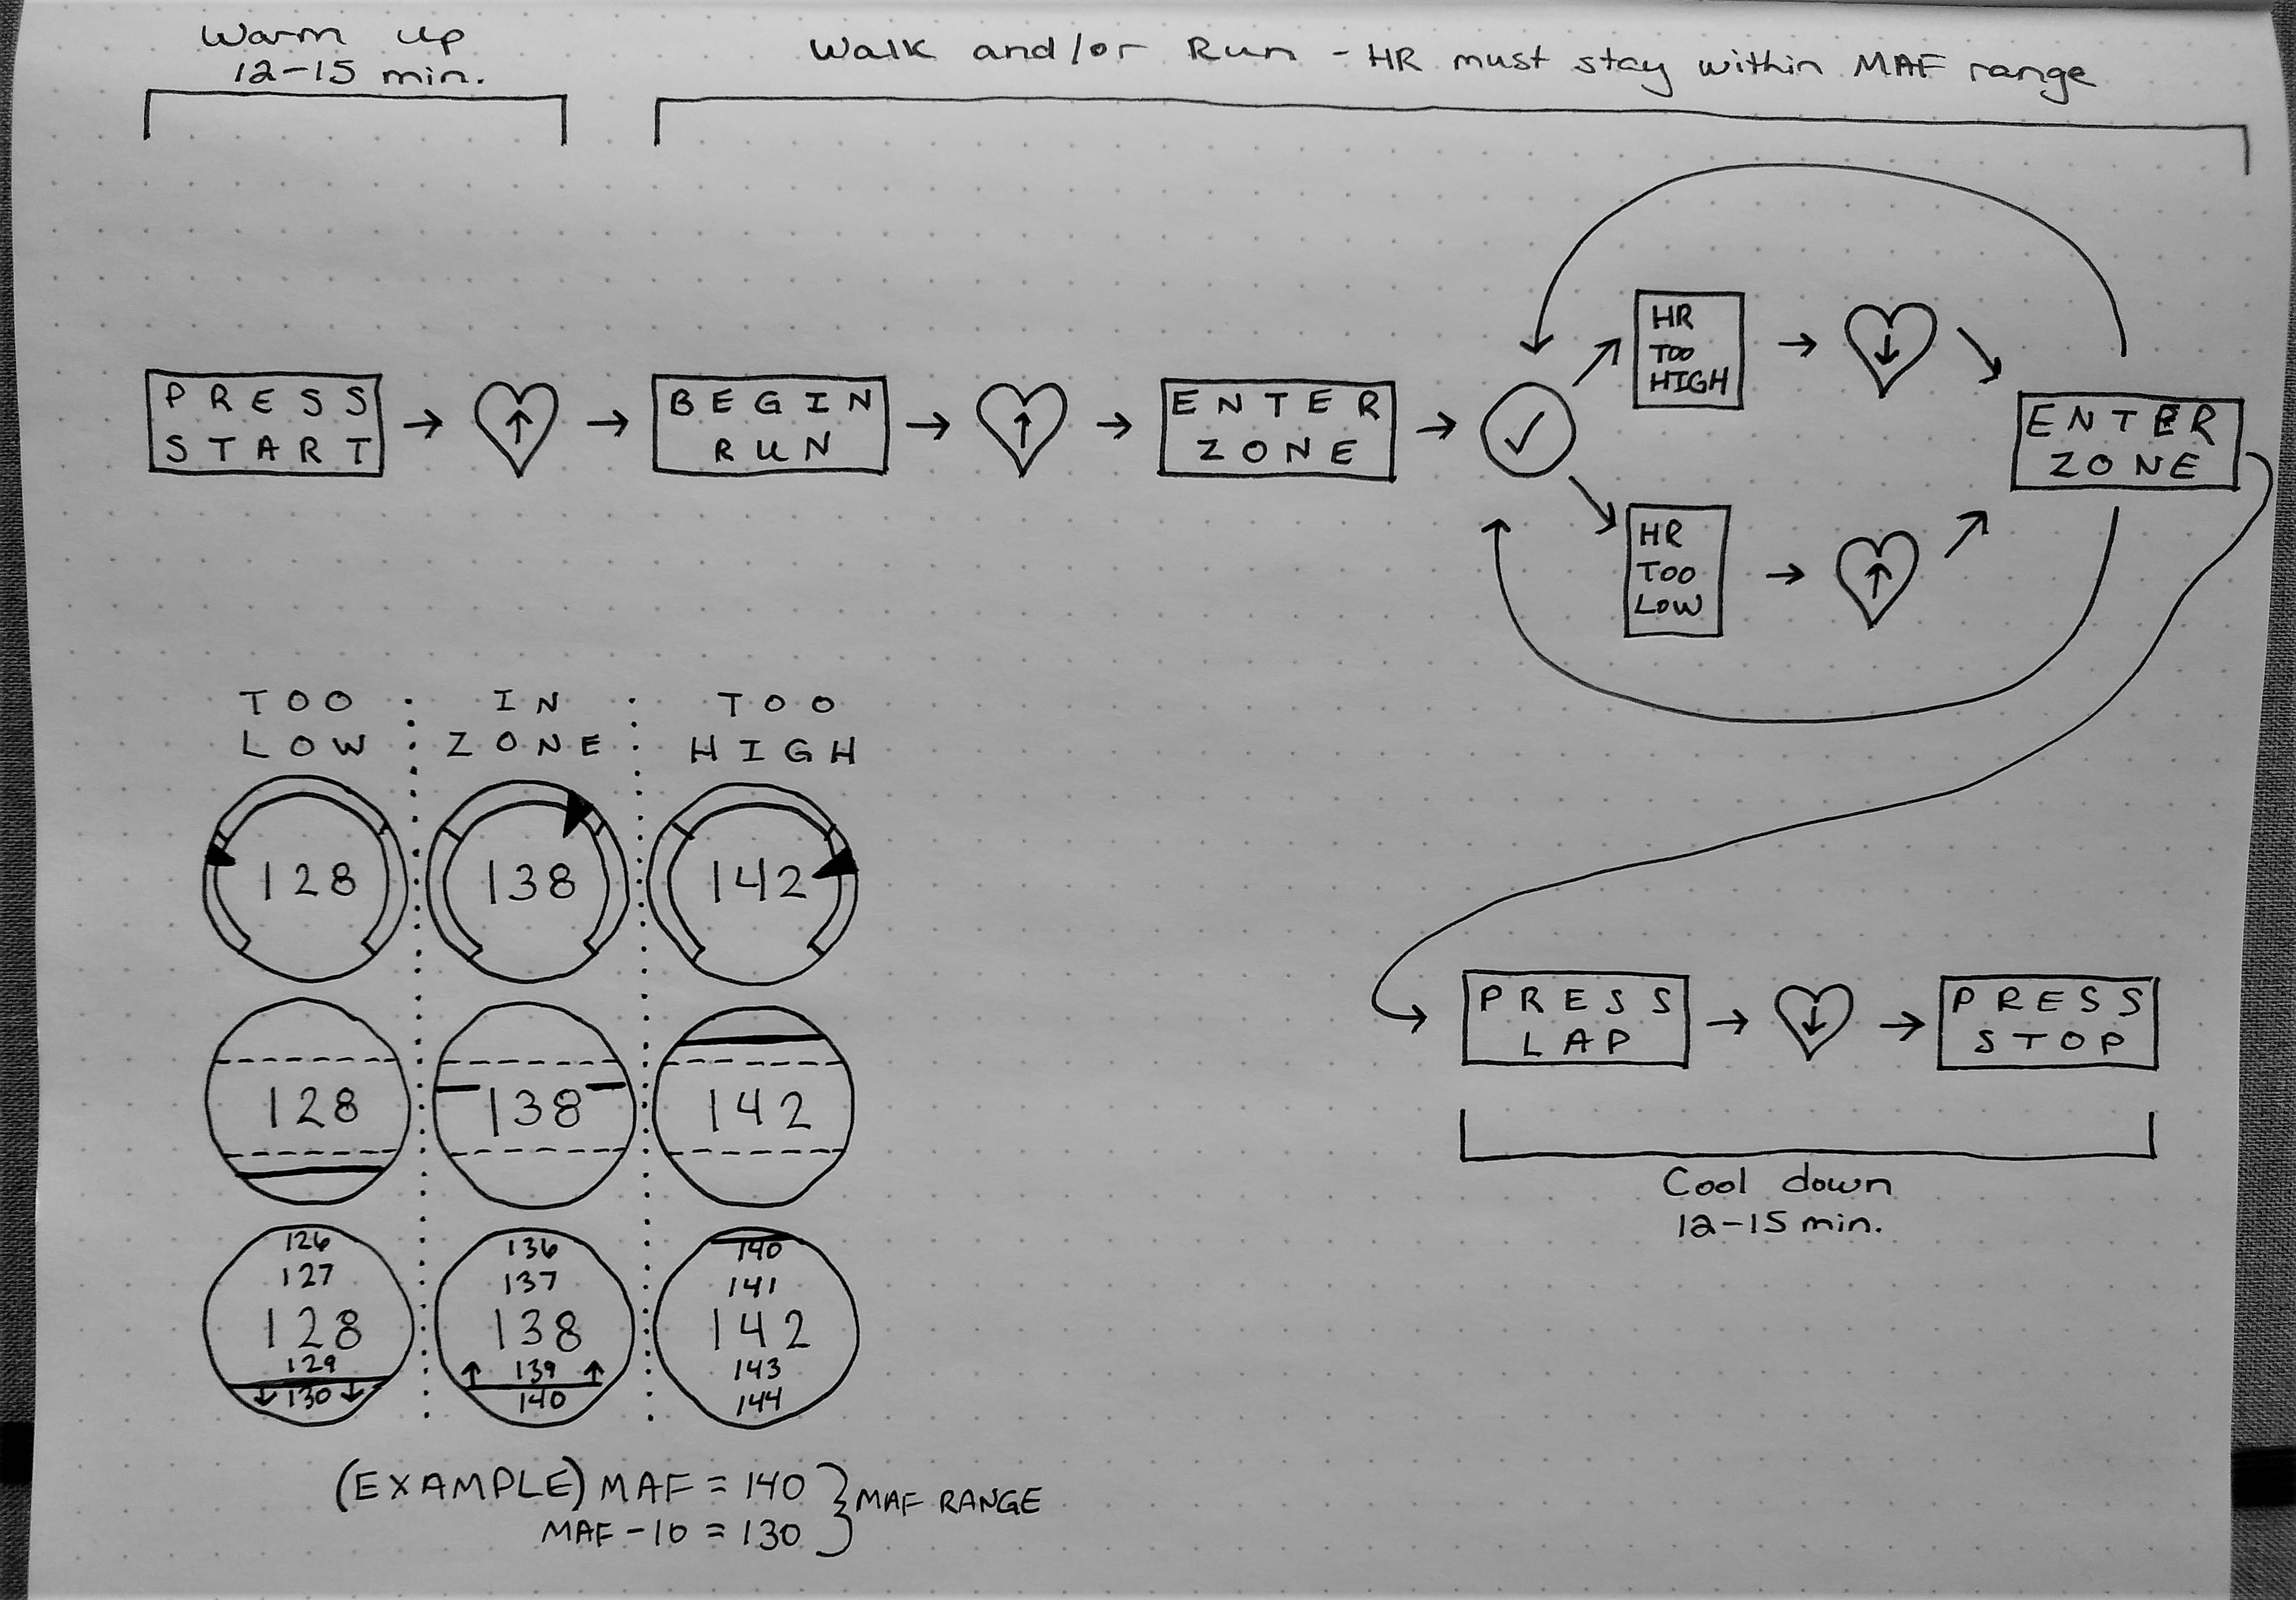 Warm up
12-15 min.
Walk and/or Run - HR must stay within MAF range
PRESS
START
BEGIN
RUN
ENTER
ZONE
HR
TOO
HIGH
HR
TOO
LOW
ENTER
ZONE
TOO
LOW
IN
ZONE
TOO
HIGH
128
138
142
128
138
142
126
127
128
129
130
136
137
138
139
140
140
141
142
143
144
PRESS
LAP
PRESS
STOP
Cool down
12-15 min.
(EXAMPLE) MAF = 140
MAF - 10 = 130
MAF RANGE